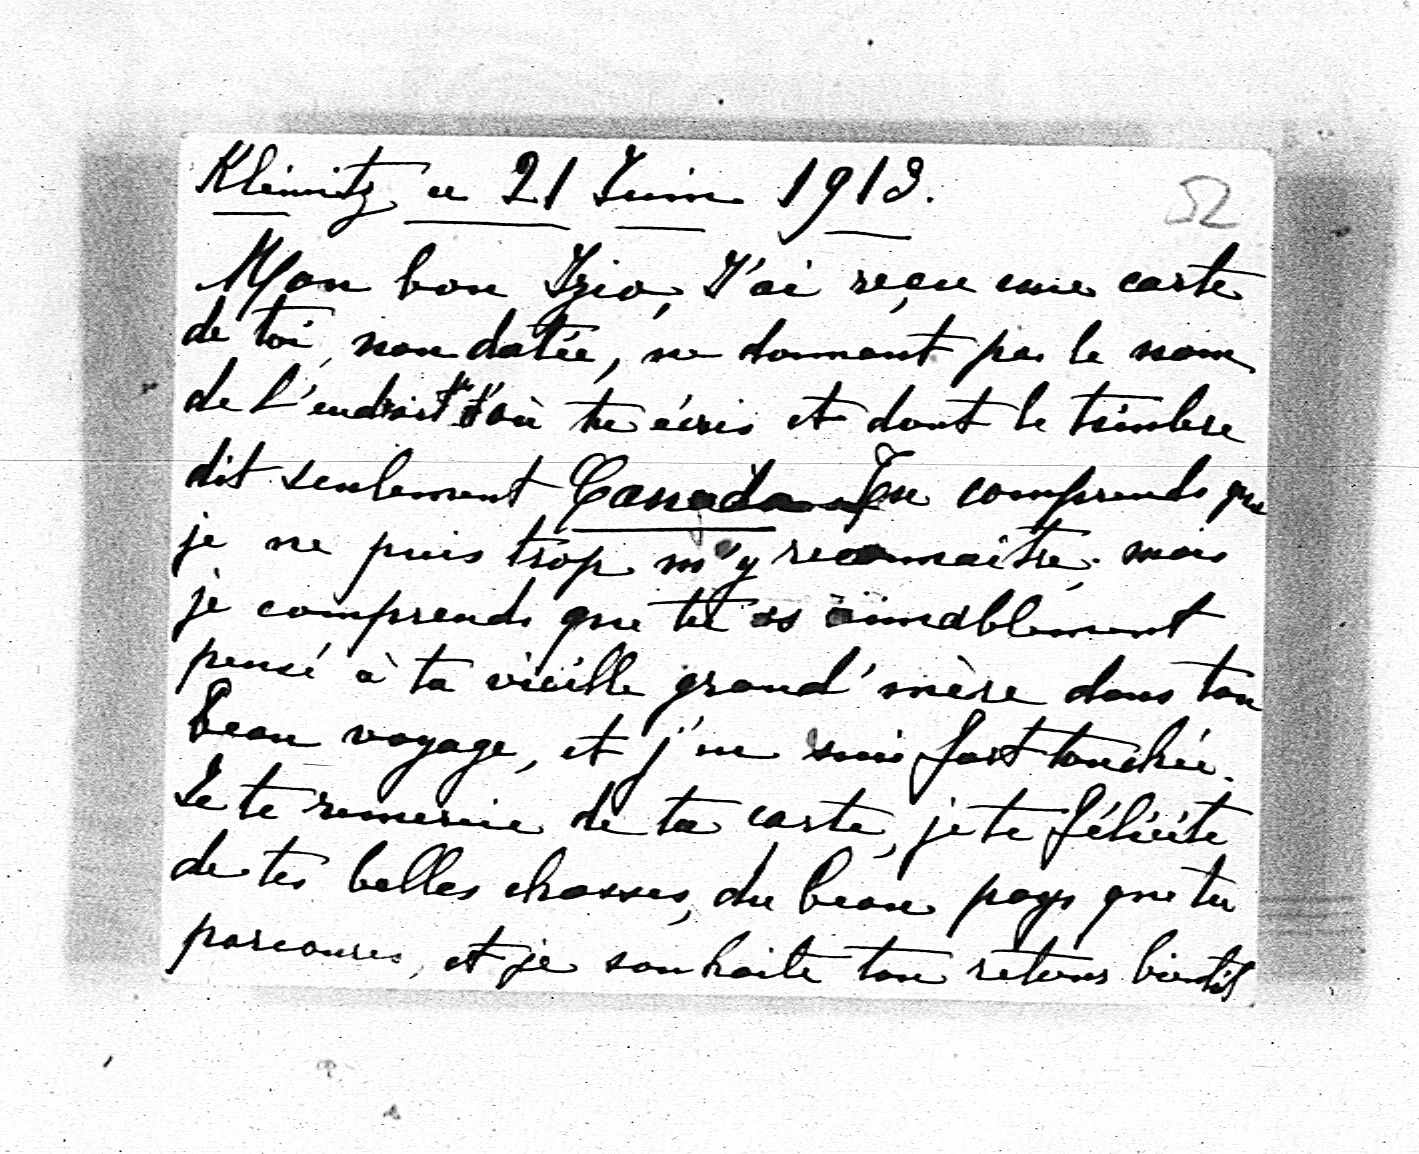 Klemitz ce 21 Juin 1913.
52
Mon bon Izio, J'ai reçu une carte
de toi, non datée, ne donnant pas le nom
de l'endroit d'où tu écris et dont le timbre
dit seulement Canada Tu comprends que
je ne puis trop m'y reconnaitre; mais
je comprends que tu as aimablement
pensé à ta vieille grand'mère dans ton
beau voyage, et j'en suis fort touchée.
Je te remercie de ta carte, je te félicite
de tes belles chasses, du beau pays que tu
parcoures, et je souhaite ton retour bientôt